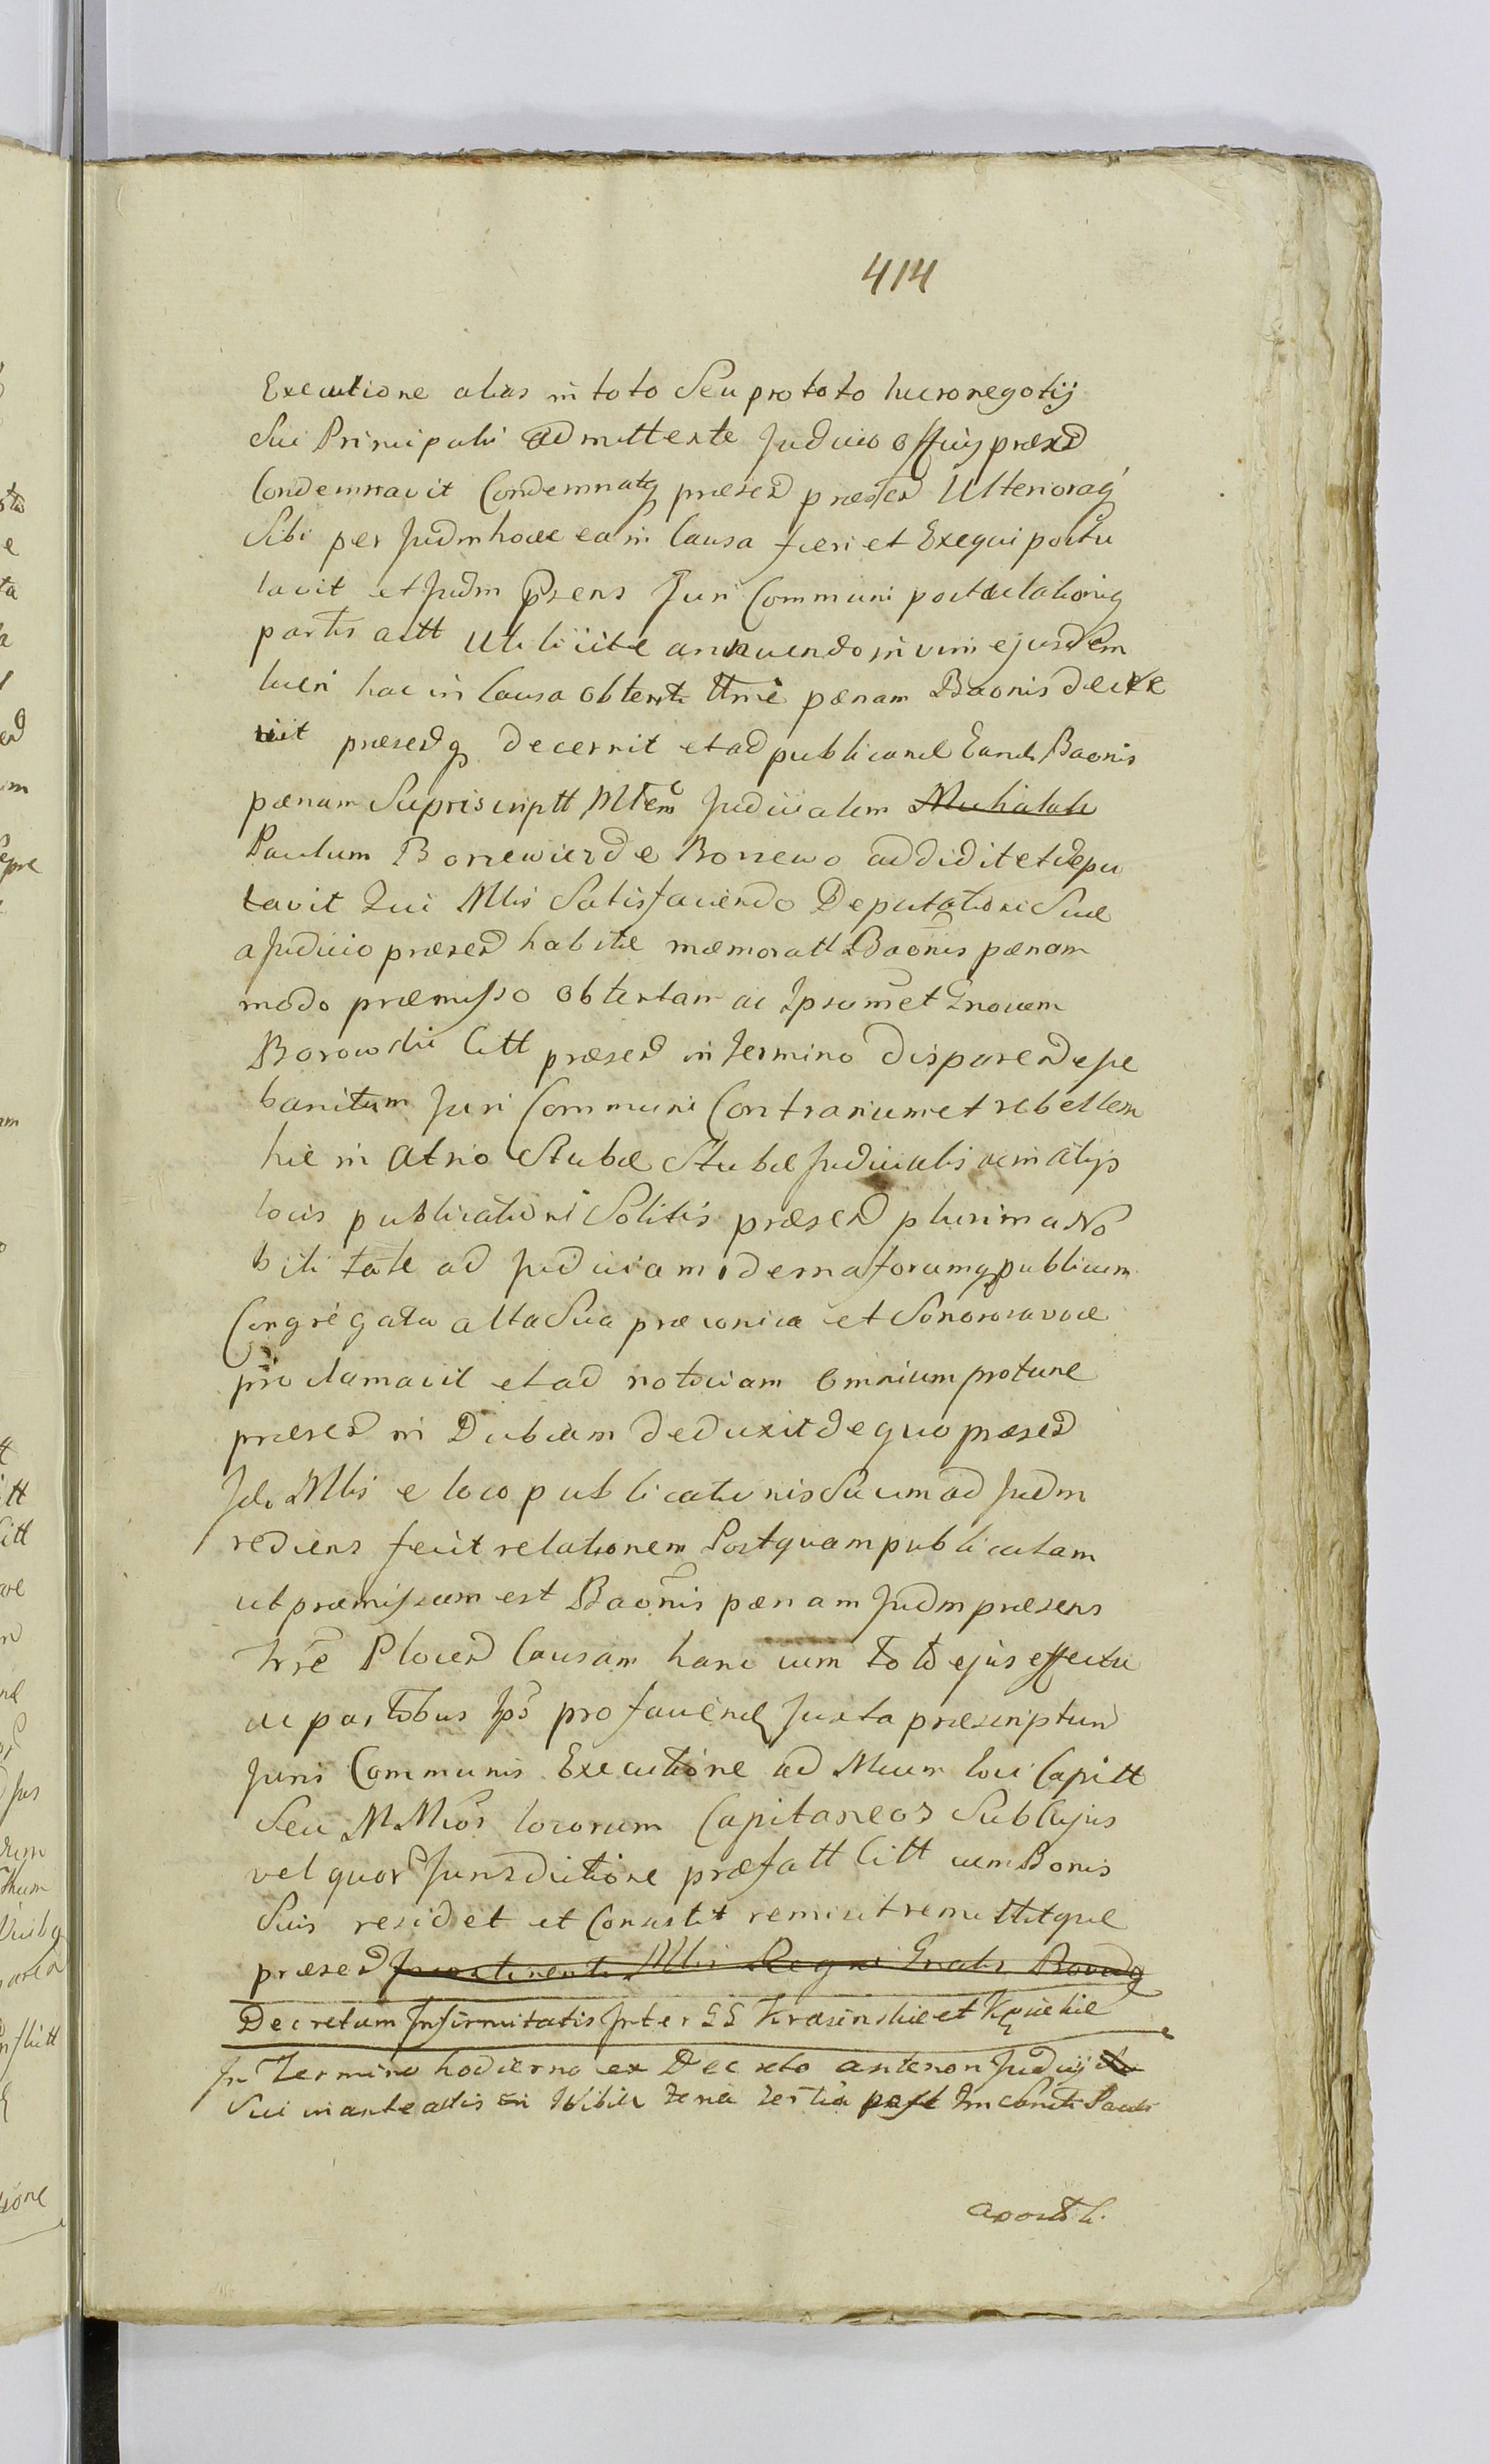 414
Executione alias in toto Seu pro toto lucro negotij
Sui Principali admittente Judicio officij præsend
Condemnavit Condemnatq præsen præsen Ulterioraq
Sibi per Judm hocce ea in Causa fieri et Exequi postu
lavit et Judm Præsens Juri Communi postulationiq
partis actt Uti licite annuendo in vim ejusdem
lucri hac in Causa obtent ttme pænam Baonis decre
vit præsend q decernit et ad publicand Eand Baonis
pænam Supriscriptt Mtem Judicialem Michalak
Paulum Borzewicz de Borzewo addidit et depu
tavit Qui Mlis Satisfaciendo Deputationi Suæ
a Judicio præsend habitæ mæmoratt Baonis pænam
modo præmisso obtentam ac Ipsummet Gnosum
Borowski Citt præsend in termino disparend esse
banitum Juri Communi Contrarium et rebellem
hic in atrio Stubæ Stubæ Judicialis ac in alijs
locis publicationi Solitis præsend plurima No
bilitate ad Judicia moderna forumq publicum
Congregata alta Sua præconica et Sonorosa voce
proclamavit et ad notitiam omnium pro tunc
præsend in Dubiam deduxit de quo præsend
Ide Mlis e loco publicationis Suum ad Judm
rediens fecit relationem Postquam publicatam
ut præmissum est Baonis pænam Judm præsens
Trre Plocen Causam hanc cum toto ejus effectu
ac partibus Ips pro faciend Juxta præscriptum
Juris Communis Executione ad Mcum loci Capitt
Seu M Mcos locorum Capitaneos Sub Cujus
vel quor Jurisdictione præfatt Citt cum Bonis
Suis residet et Consistit remisit remittitque
præsend Incontinenti Mlis Regni Gnalis
Decretum Infirmitatis Inter GG Krasinskie et Kęckie
In Termino hodierno ex Decreto anteriori Judicij
Sui in anteactis feria tertia post Sancti Pauli
apostoli.